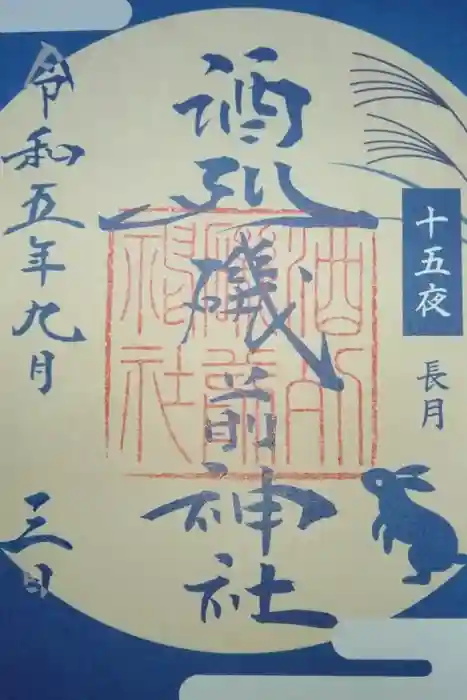 十五夜
長月
酒列磯前神社
令和五年九月
三日
酒列
磯前
神社